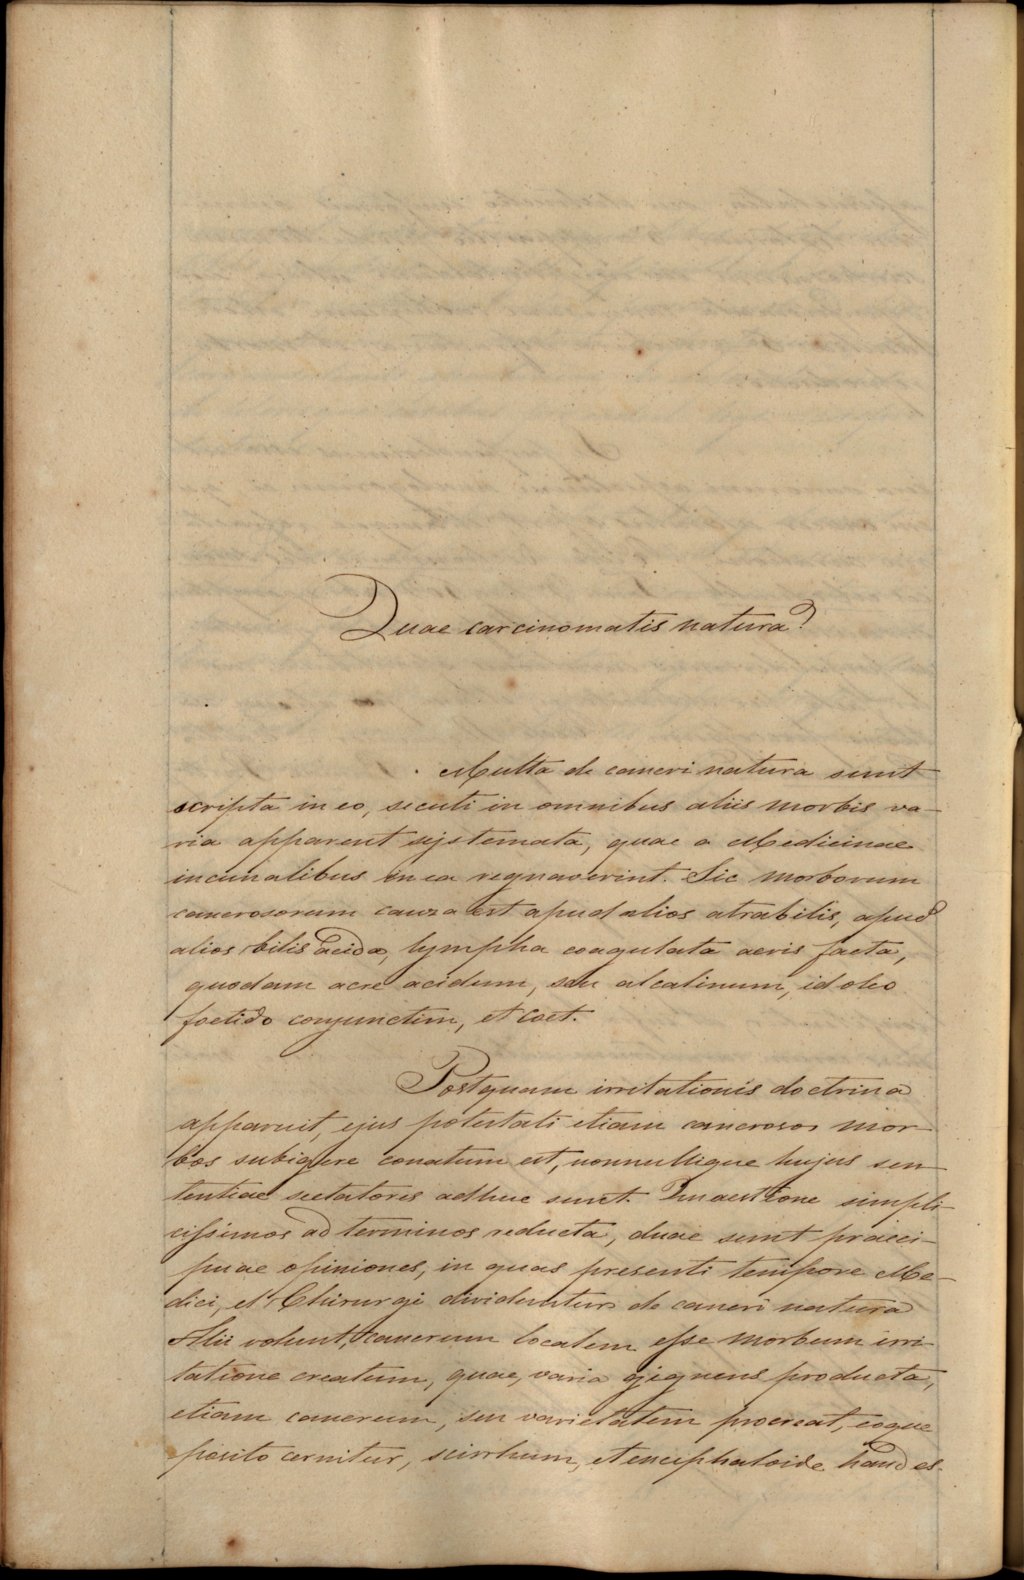 Quae carcinomatis natura?
Multa de cancri natura sunt
scripta in eo, sicuti in omnibus aliis morbis va-
ria apparent systemata, quae a Medicinae
incunalibus in ea regnaverint. Sic morborum
cancrosorum causa est apud alios atrabilis, apud
alios bilis acida, lympha coagulata acris facta,
quodam acre acidum, seu alcalinum, id oleo
foetido conjunctim, et coet.
Postquam irritationis doctrina
apparuit, ejus potestati etiam cancrosos mor-
bos subigere conatum est, nonnullique hujus sen-
tentiae sectatores adhuc sunt. Quaestione simpli-
cissimos ad terminos reducta, duae sunt praeci-
puae opiniones, in quas presenti tempore Me-
dici, et Chirurgi dividuntur de cancri natura
Alii volunt, cancrum localem esse morbum irri-
tatione creatum, quae, varia gignens producta,
etiam cancrum, seu varietatem procreat, eoque
posito cernitur, scirrhum, et encephaloide haud es-